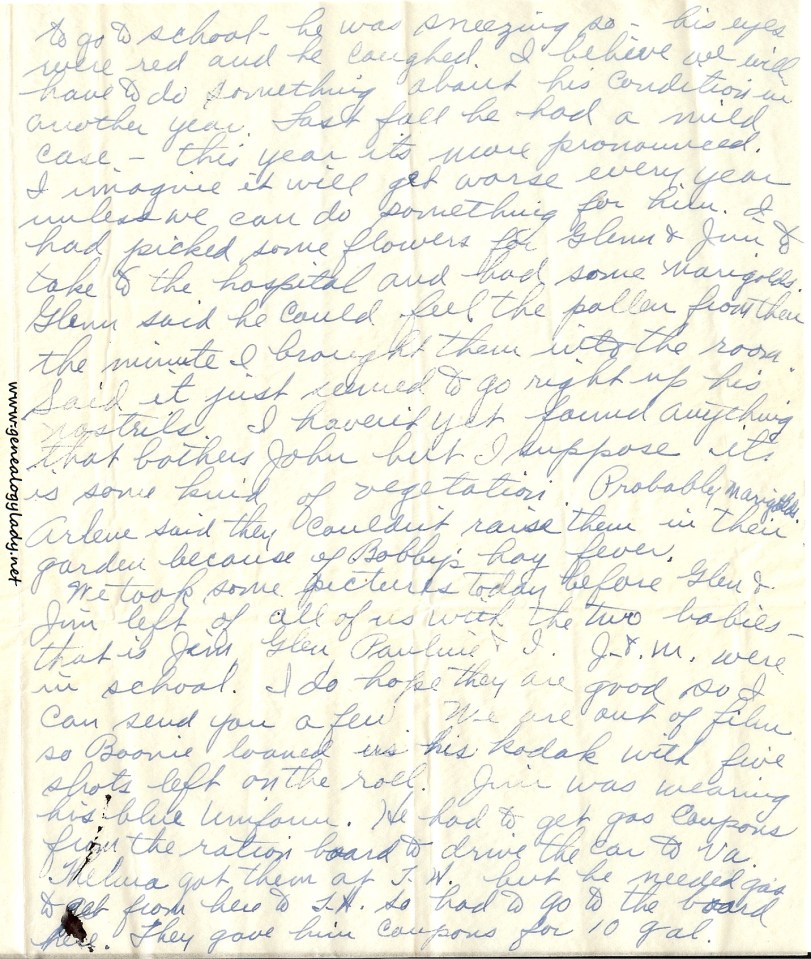 to go to school - he was sneezing so - his eyes
were red and he coughed. I believe we will
have to do something about his condition in
another year. Last fall he had a mild
case - this year its more pronounced.
I imagine it will get worse every year
unless we can do something for him. I
had picked some flowers for Glenn & Jim to
take to the hospital and had some marigolds.
Glenn said he could feel the pollen from them
the minute I brought them into the room
Said it just seemed to go right up his
nostrils. I haven't yet found anything
that bothers John but I suppose its
is some kind of vegetation. Probably marigolds.
Arlene said they couldn't raise them in their
garden because of Bobby's hay fever.
We took some pictures today before Glen &
Jim left of all of us with the two babies -
that is Jim, Glen Pauline & I. J. & M. were
in school. I do hope they are good so I
can send you a few. We are out of film
so Boonie loaned us his kodak with five
shots left on the roll. Jim was wearing
his blue uniform. He had to get gas coupons
from the ration board to drive the car to Va.
Thelma got them at T.H. but he needed gas
to get from here to T.H. so had to go to the board
here. They gave him coupons for 10 gal.
www.genealogylady.net